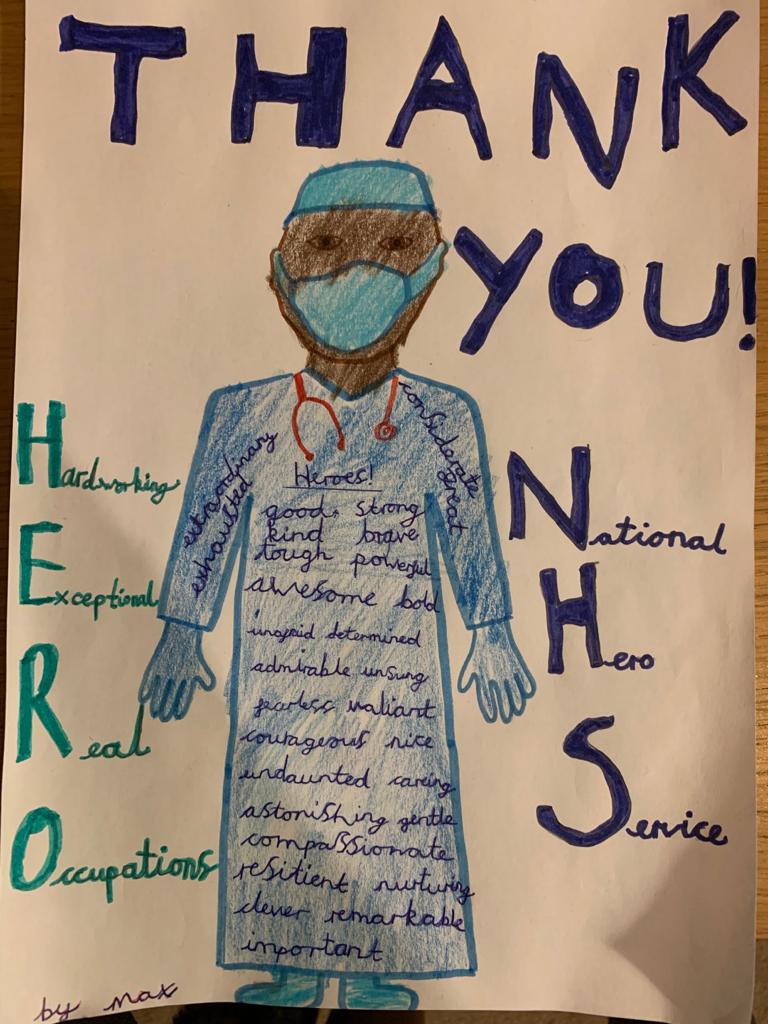 THANK
YOU!
Hardworking
Exceptional
Real
Occupations
extraordinary
exhausted
considerate
great
Heroes!
good, strong
kind brave
tough powerful
awesome bold
unafraid determined
admirable unsung
fearless valiant
courageous nice
undaunted caring
astonishing gentle
compassionate
resilient nurturing
clever remarkable
important
National
Hero
Service
by max